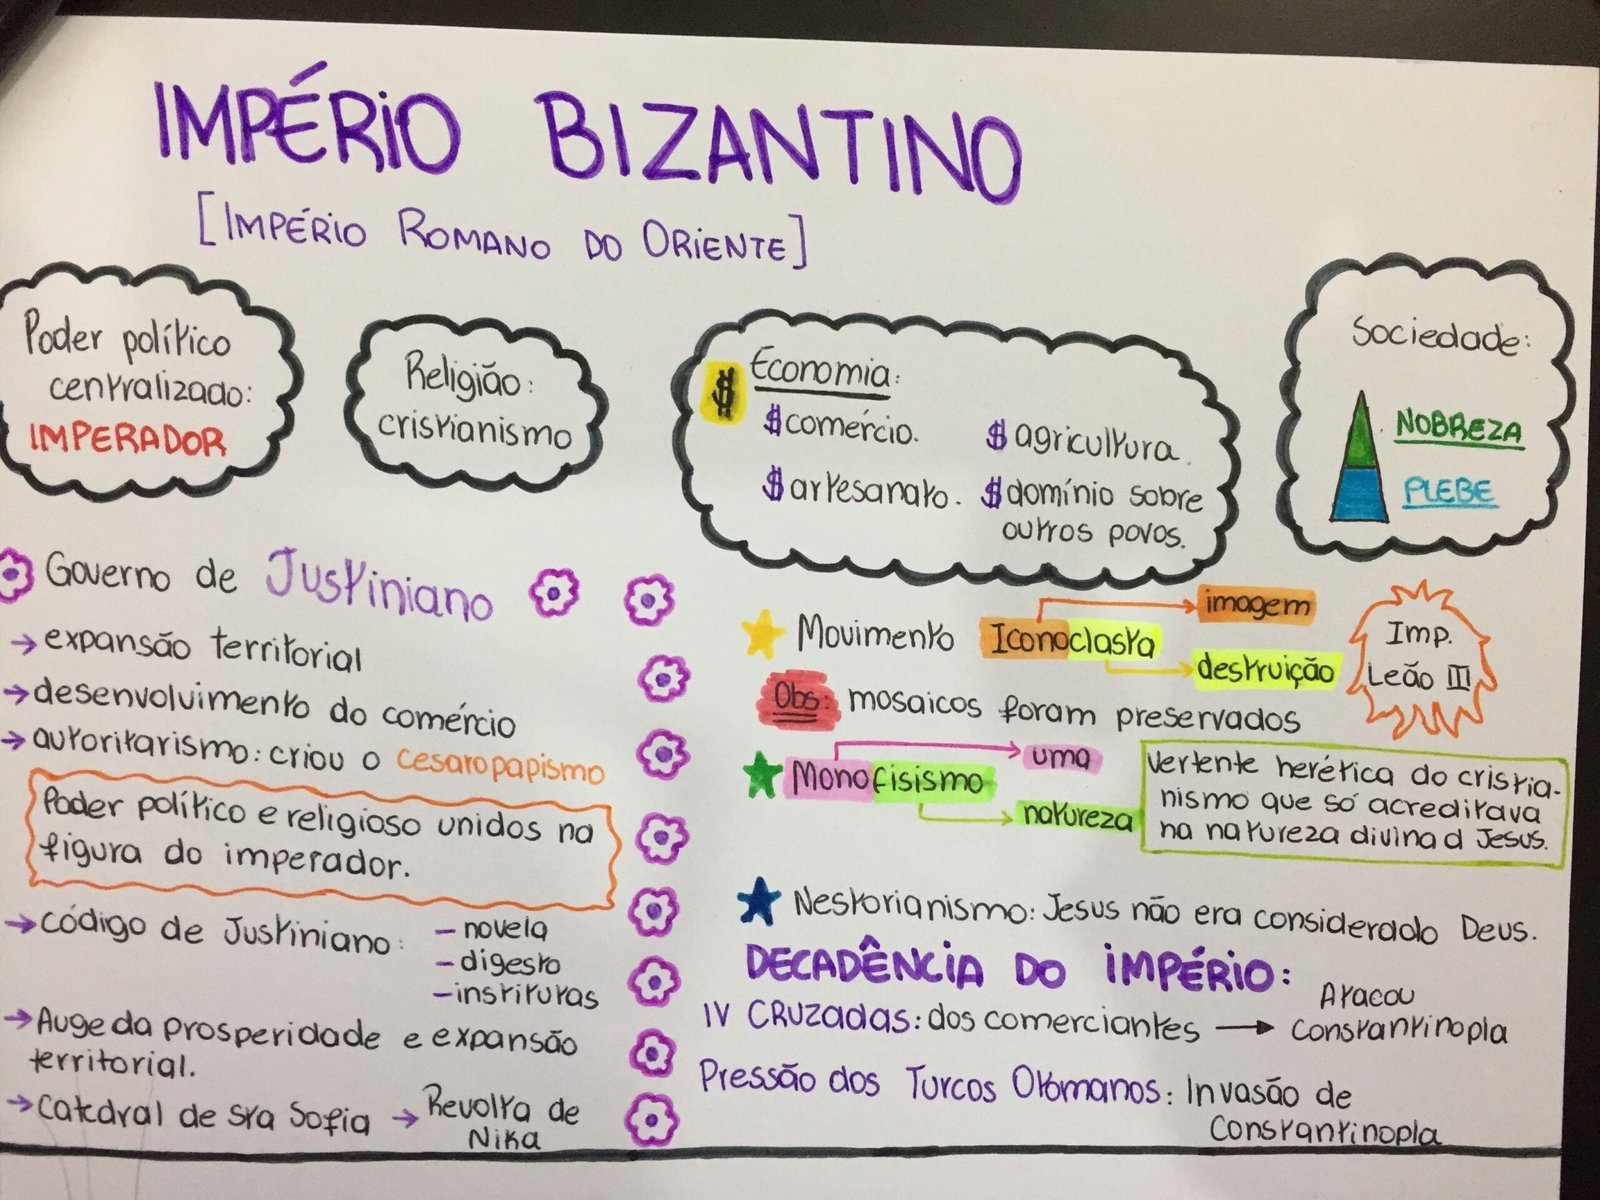 IMPÉRIO BIZANTINO
[IMPÉRIO ROMANO DO ORIENTE]
Poder político
centralizado:
IMPERADOR
Religião:
cristianismo
$ Economia:
$ comércio.
$ agricultura.
$ artesanato.
$ domínio sobre
outros povos.
Sociedade:
NOBREZA
PLEBE
Governo de Justiniano
→ expansão territorial
→ desenvolvimento do comércio
→ autoritarismo: criou o cesaropapismo
Poder político e religioso unidos na
figura do imperador.
→ código de Justiniano:
– novela
– digesto
– institutas
→ Auge da prosperidade e expansão
territorial.
→ Catedral de Sta Sofia → Revolta de
Nika
Movimento Iconoclasta
imagem
destruição
Imp.
Leão III
Obs: mosaicos foram preservados
Monofisismo
uma
natureza
Vertente herética do cristia-
nismo que só acreditava
na natureza divina d Jesus.
Nestorianismo: Jesus não era considerado Deus.
DECADÊNCIA DO IMPÉRIO:
IV CRUZADAS: dos comerciantes → Atacou
Constantinopla
Pressão dos Turcos Otomanos: Invasão de
Constantinopla